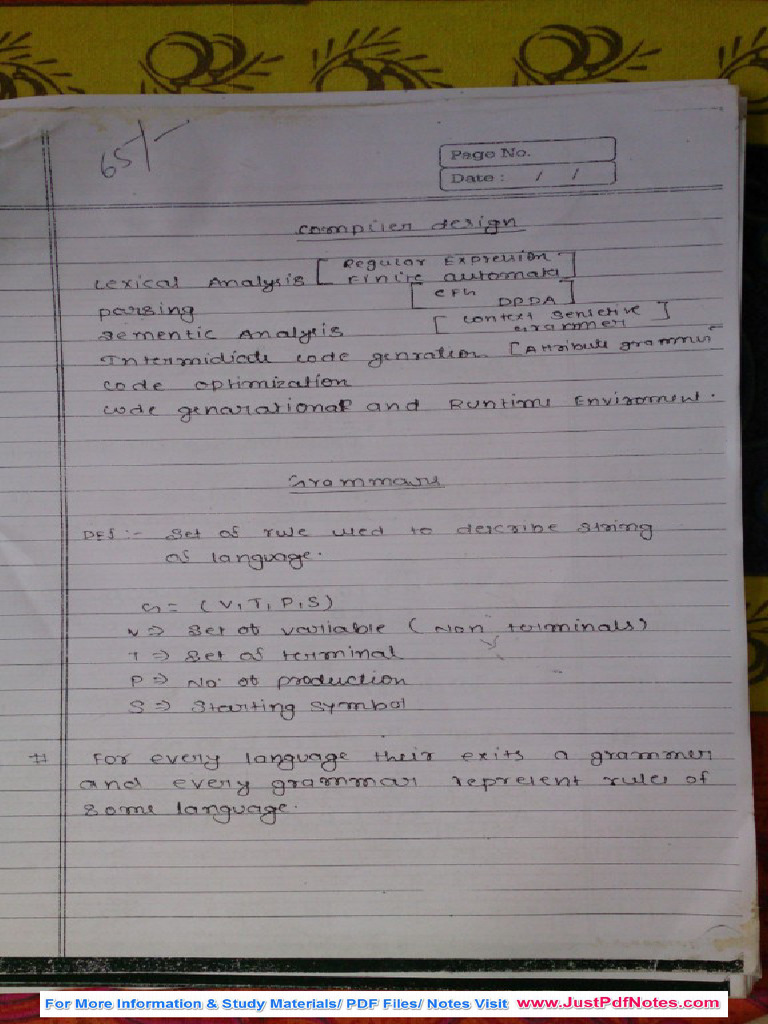 65/-
Page No.
Date : / /
compiler design
Lexical Analysis [ Regular Expression. Finite automata ]
parsing [ CFG DPDA ]
Sementic Analysis [ context sensetive grammer ]
Intermidiade code genration [ Attribute grammer
code optimization
code genarational and Runtime Enviroment.
Grammars
DEf :- Set of rule used to describe string
of language.
G = (V, T, P, S)
V => Set of variable ( Non terminals)
T => Set of terminal
P => No. of production
S => Starting symbol
# For every language their exits a grammer
and every grammar represent rules of
some language.
For More Information & Study Materials/ PDF Files/ Notes Visit www.JustPdfNotes.com